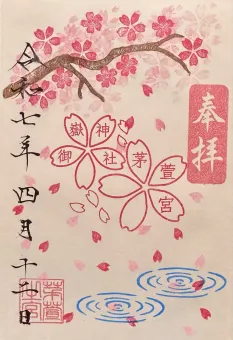 奉拝
御嶽神社
茅萱宮
令和七年四月十二日